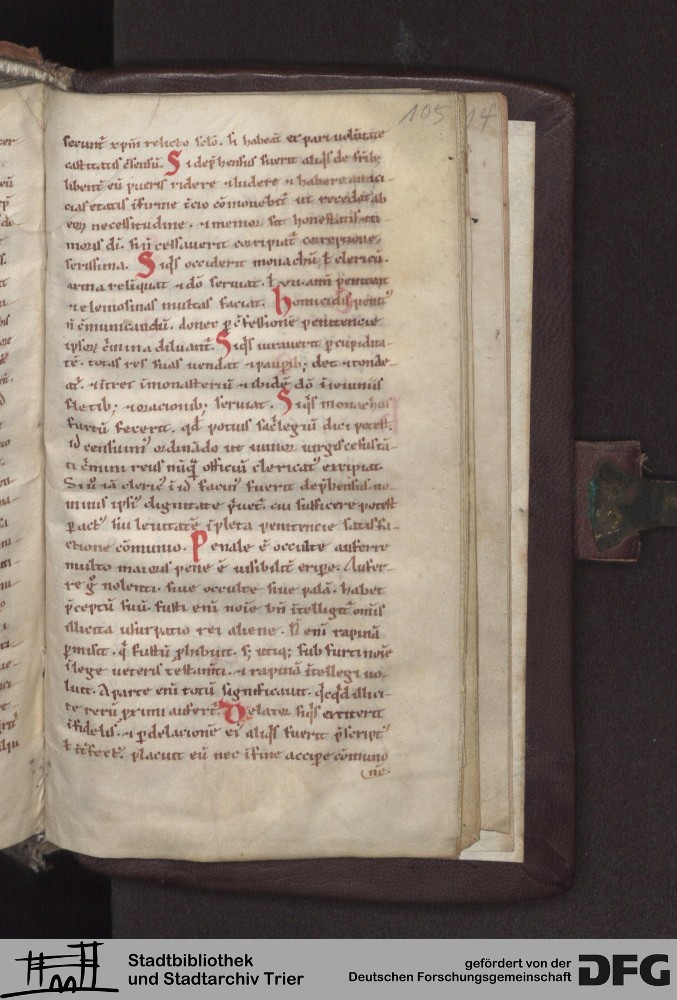 105 14
seruunt xpm relicto sclo. si habeat et pari uoluntate
castitatis c̄sensū. Si dep̄hensus fuerit aliq̇s de frīb;
libent̄ cū pueris ridere ⁊ ludere ⁊ habere amici-
cias etatis ifirme t̄cio cōmonebit̄ ut recedat ab
eoꝝ necessitudine. ⁊ memor sit honestatis ⁊ ti-
moris dī. si n̄ cessauerit corripiat̄ correptione
serissima. Siq̇s occiderit monachū ł clericū.
arma relinquat ⁊ dō seruiat. ł .vii. ann̄ peniteat
⁊ elemosinas multas faciat. Homicidis penit᷒
n̄ c̄municandū. donec p c̄fessionē penitencie
ipsoꝝ c̄mina diluant̄. Siq̇s iurauerit p cupidita-
tē. totas res suas uendat ⁊ pauꝑib; det ⁊ tonde-
at̄. ⁊ ītret ī monasteriū ⁊ ibidē dō ī ieiuniis
fletib; ⁊ oracionib; seruiat. Siq̇s monachus
furtū fecerit. qd̄ potius sac̄legiū dici potest.
id censuim᷒ ordinādo ut iunior uirgis cesus tā-
ti c̄minis reus nūq̄ officiū clericat᷒ excipiat.
Si ū iā cleric᷒ ī id facin᷒ fuerit dep̄hensus no-
minis ipsi᷒ dignitate p̄uet̄. cui sufficere potest
p act᷒ sui leuitatē īpleta penitencie satisfa-
ctione cōmunio. Penale ē occulte auferre
multo maioris pene ē uisibilit̄ eripe. Aufer-
re g̊ nolenti siue occulte siue palā. habet
p̄ceptū suū. furti eni noīe bn̄ ītelligit̄ om̄is
illicita usurpatio rei aliene. Nō eni rapinā
permisit. q̇ furtū phibuit. s; utiq; sub furti noīe
ī lege ueteris testam̄ti. ⁊ rapinā ītellegi uo-
luit. A parte eni totū significauit. qcqd illici-
te rerū pximi aufert̄. Delator siq̇s extiterit
ifidelis. ⁊ p delacionē ei᷒ aliq̇s fuerit p̄script᷒
ł ītfect᷒. placuit eū nec ī fine accipe cōmunio
nē.
Stadtbibliothek
und Stadtarchiv Trier
gefördert von der
Deutschen Forschungsgemeinschaft DFG